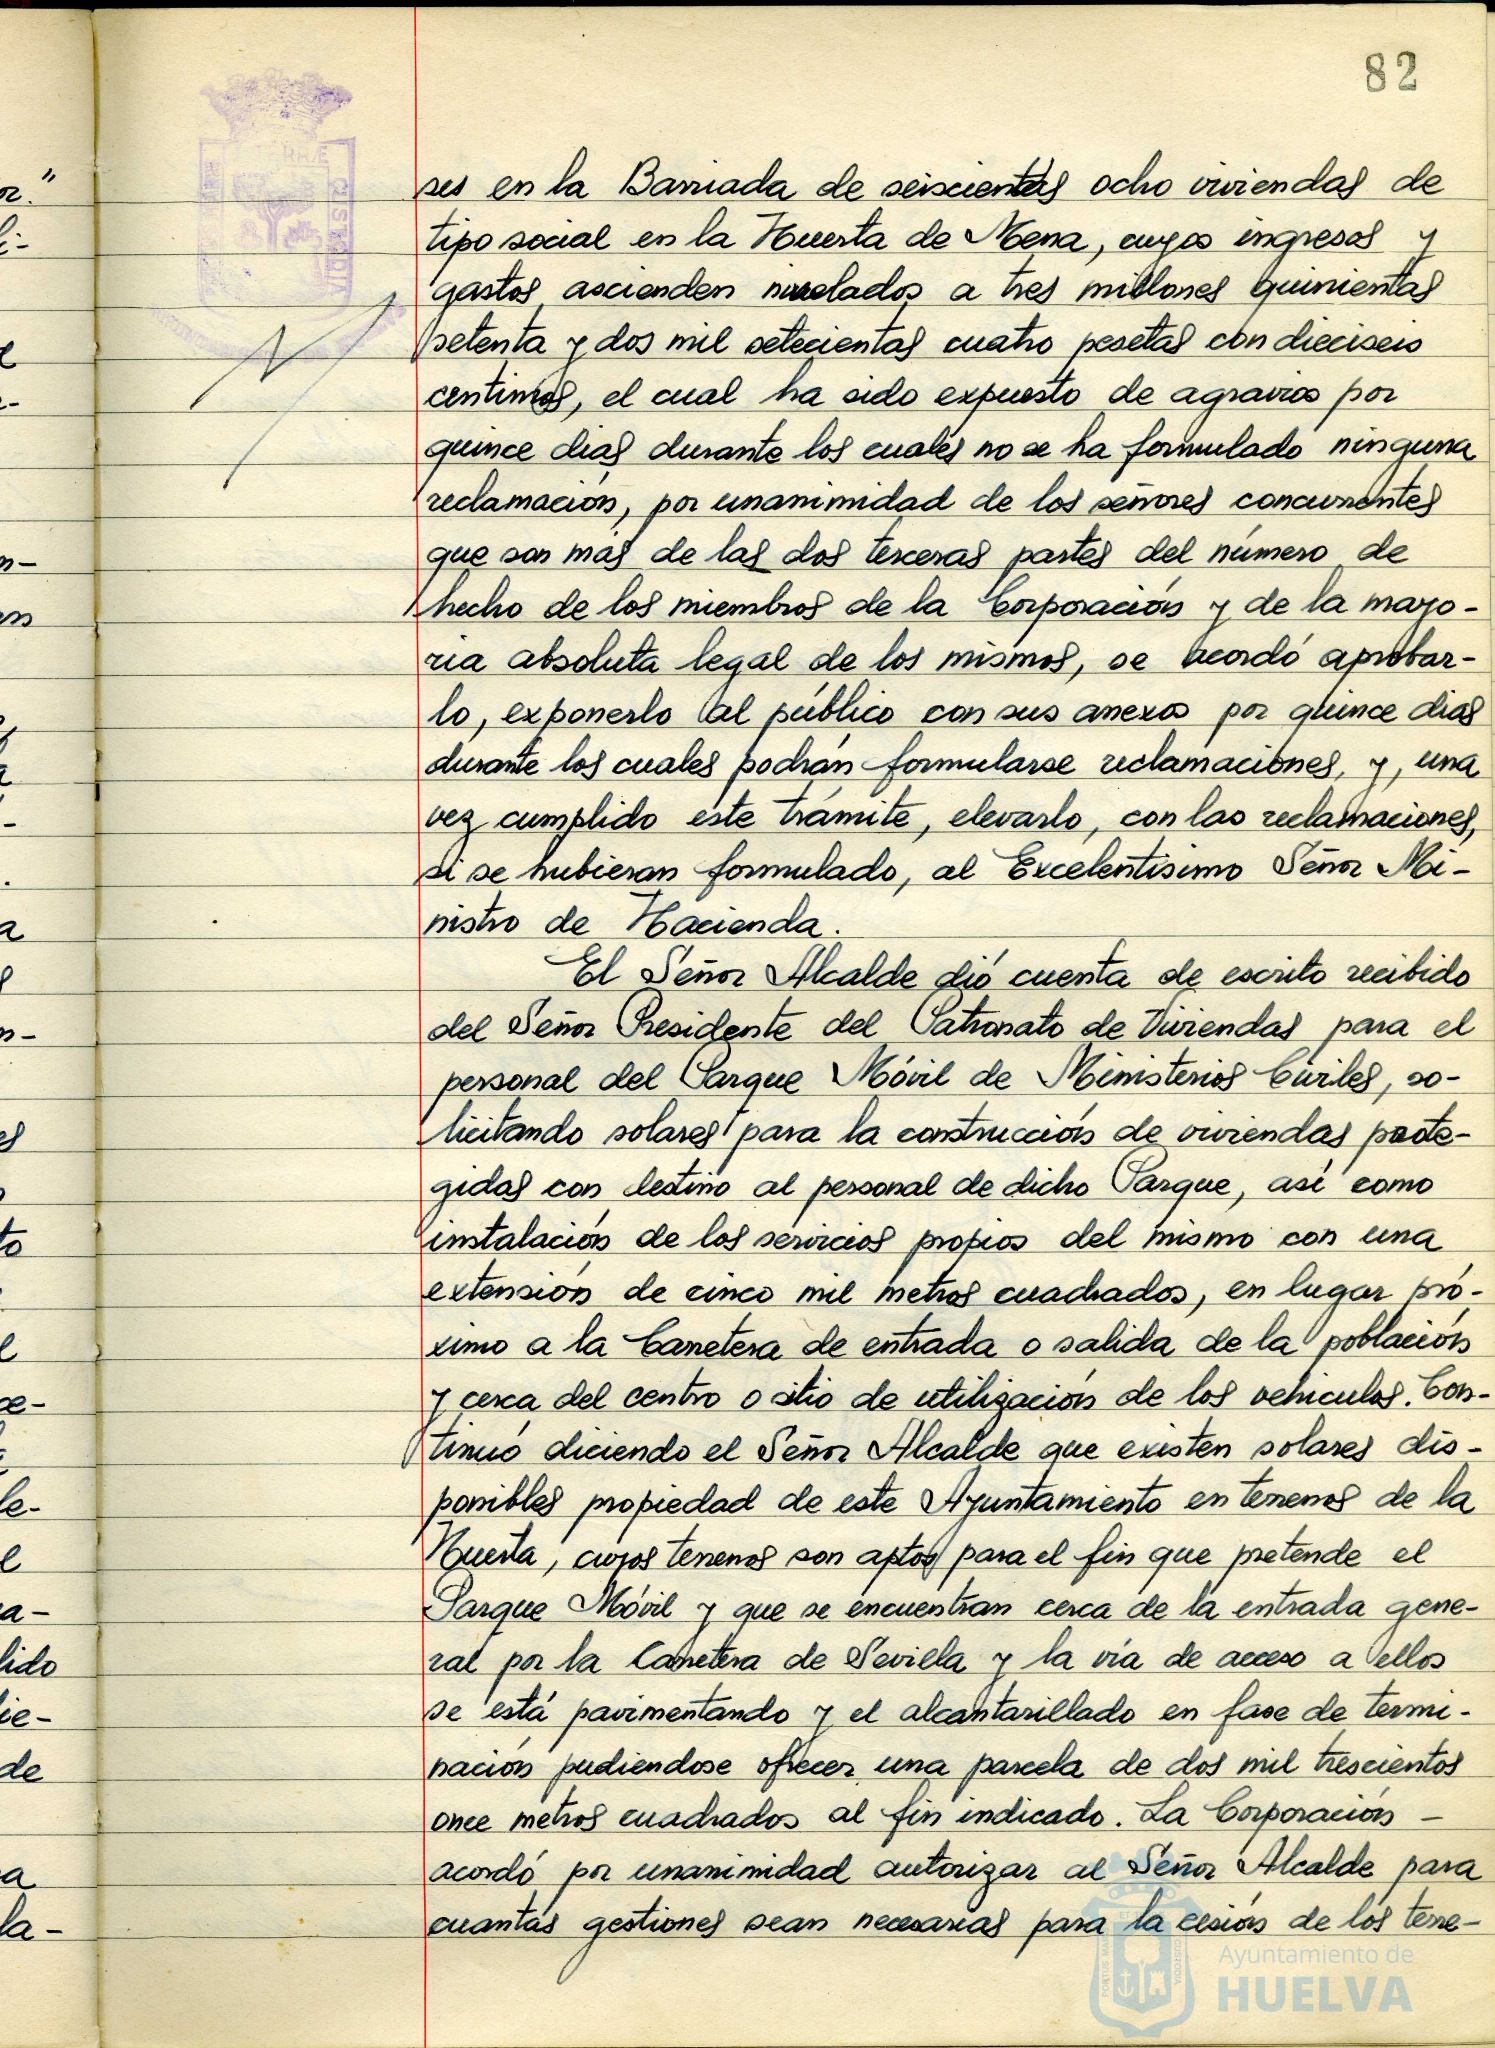 82
ses en la Barriada de seiscientas ocho viviendas de
tipo social en la Huerta de Mena, cuyos ingresos y
gastos ascienden nivelados a tres millones quinientas
setenta y dos mil setecientas cuatro pesetas con dieciseis
centimos, el cual ha sido expuesto de agravios por
quince dias durante los cuales no se ha formulado ninguna
reclamación, por unanimidad de los señores concurrentes
que son más de las dos terceras partes del número de
hecho de los miembros de la Corporación y de la mayo-
ria absoluta legal de los mismos, se acordó aprobar-
lo, exponerlo al público con sus anexos por quince dias
durante los cuales podrán formularse reclamaciones, y, una
vez cumplido este trámite, elevarlo, con las reclamaciones,
si se hubieran formulado, al Excelentisimo Señor Mi-
nistro de Hacienda.
El Señor Alcalde dió cuenta de escrito recibido
del Señor Presidente del Patronato de Viviendas para el
personal del Parque Móvil de Ministerios Civiles, so-
licitando solares para la construcción de viviendas prote-
gidas con destino al personal de dicho Parque, asi como
instalación de los servicios propios del mismo con una
extensión de cinco mil metros cuadrados, en lugar pró-
ximo a la Carretera de entrada o salida de la población
y cerca del centro o sitio de utilización de los vehiculos. Con-
tinuó diciendo el Señor Alcalde que existen solares dis-
ponibles propiedad de este Ayuntamiento en terrenos de la
Huerta, cuyos terrenos son aptos para el fin que pretende el
Parque Móvil y que se encuentran cerca de la entrada gene-
ral por la Carretera de Sevilla y la vía de acceso a ellos
se está pavimentando y el alcantarillado en fase de termi-
nación pudiendose ofrecer una parcela de dos mil trescientos
once metros cuadrados al fin indicado. La Corporación —
acordó por unanimidad autorizar al Señor Alcalde para
cuantas gestiones sean necesarias para la cesión de los terre-
Ayuntamiento de
HUELVA